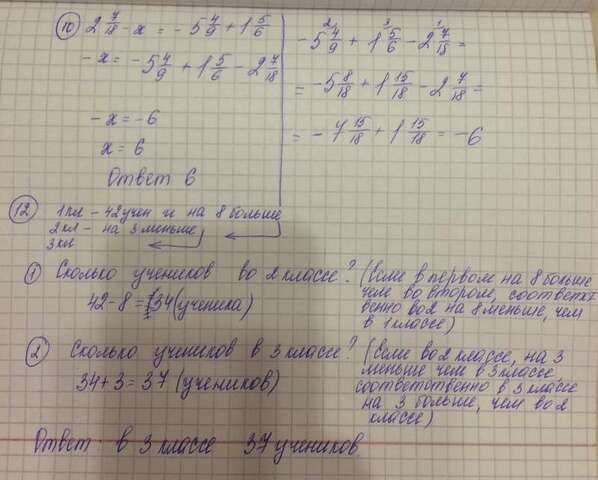 10 2 7/18 - x = - 5 4/9 + 1 5/6
- x = - 5 4/9 + 1 5/6 - 2 7/18
- x = - 6
x = 6
Ответ 6
2 3 1
- 5 4/9 + 1 5/6 - 2 7/18 =
= - 5 8/18 + 1 15/18 - 2 7/18 =
= - 7 15/18 + 1 15/18 = - 6
12 1кл - 42 учен и на 8 больше
2кл - на 3 меньше
3кл
1 Сколько учеников во 2 классе? (Если в первом на 8 больше
чем во втором, соответст
венно во 2 на 8 меньше, чем
в 1 классе)
42 - 8 = 34 (ученика)
2 Сколько учеников в 3 классе? (Если во 2 классе, на 3
меньше чем в 3 классе,
соответственно в 3 классе
на 3 больше, чем во 2
классе)
34 + 3 = 37 (учеников)
Ответ: в 3 классе 37 учеников